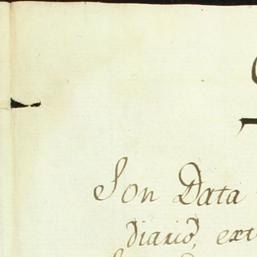 Son Data
diario, ext